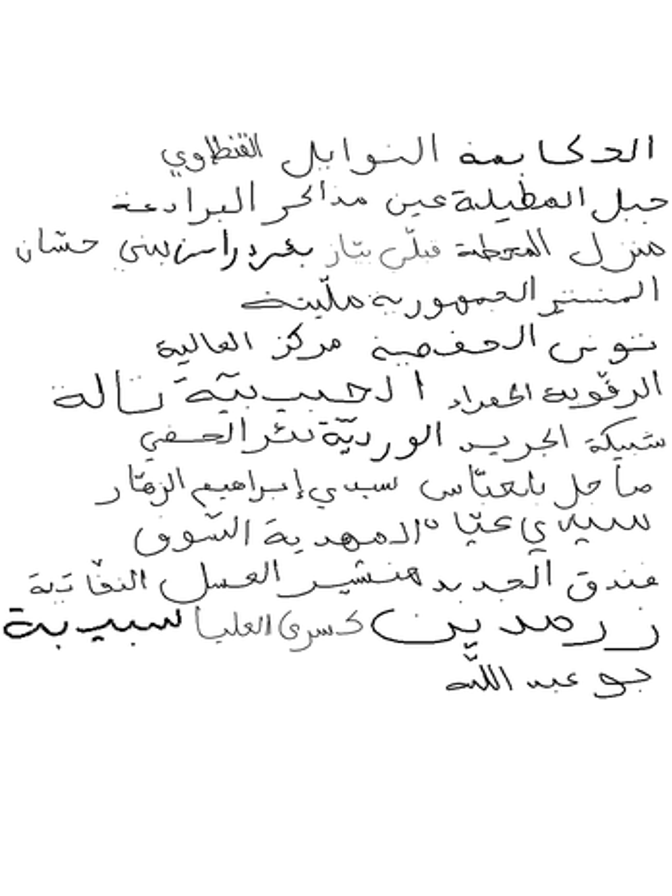 الحكايمة النوايل القنطاوي
جبل المطيلة عين مذاكر البرادعة
منزل المحطة قبلّي بني حسّان
المنستير الجمهورية مليتة
تونس الحفصية مركز العالية
الرقوبة الحمراء الحبيبيّة تالة
شبيكة الجريد الورديّة بئر الحفي
ساحل بلعبّاس سيدي إبراهيم الزهّار
سيدي عيّاد المهدية السّوق
فندق الجديد هنشير العسل النفّاتية
زرمدين كسرى العليا سبيبة
بو عبد اللّه